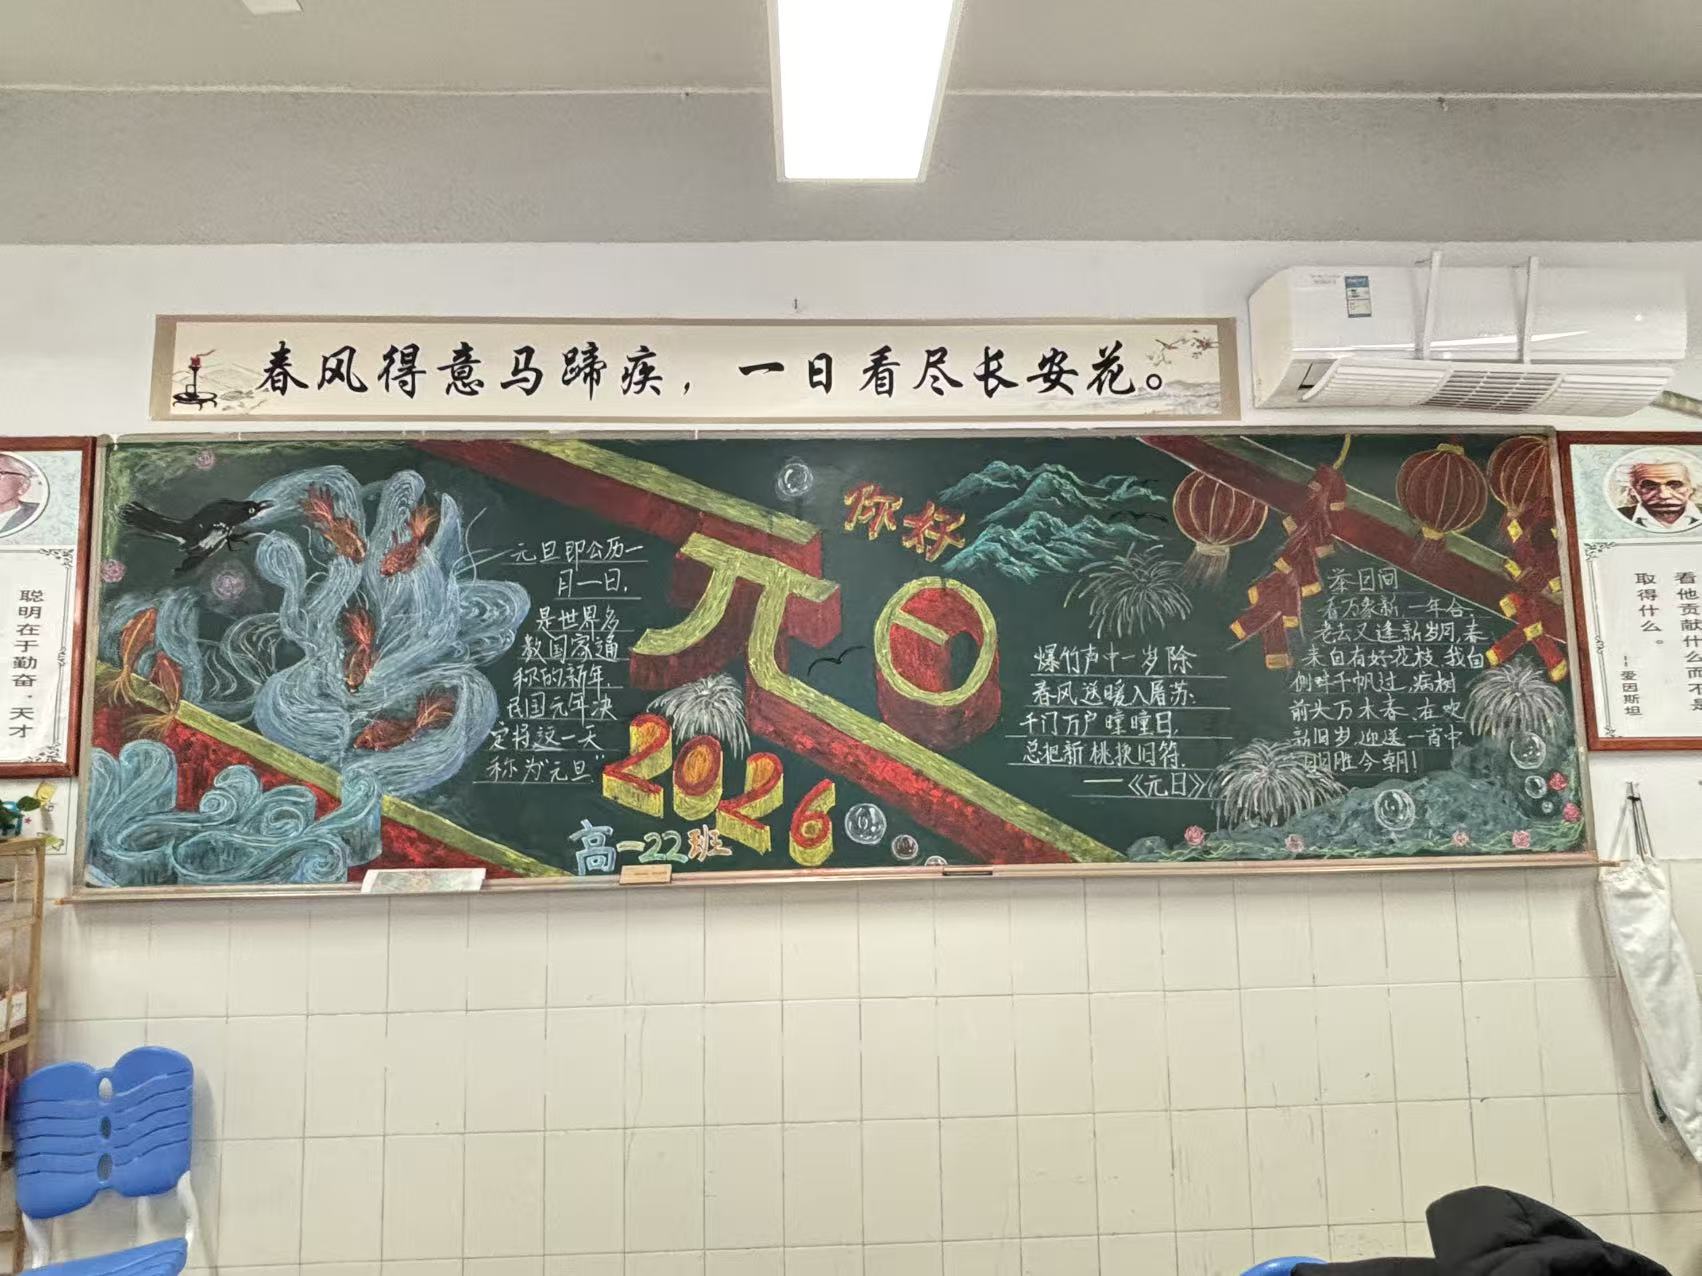 春风得意马蹄疾，一日看尽长安花。
聪明在于勤奋，天才
元旦即公历一
月一日，
是世界多
数国家通
称的新年，
民国元年决
定将这一天
称为"元旦"
你好
元日
2026
高一22班
爆竹声中一岁除
春风送暖入屠苏
千门万户曈曈日，
总把新桃换旧符.
——《元日》
举目间
看万象新,一年合.
老去又逢新岁月,春
来自有好花枝.我自
侧畔千帆过,病树
前头万木春.在吹
新旧岁,迎送一宵中.
明胜今朝!
看他贡献什么而不是
取得什么。
--爱因斯坦